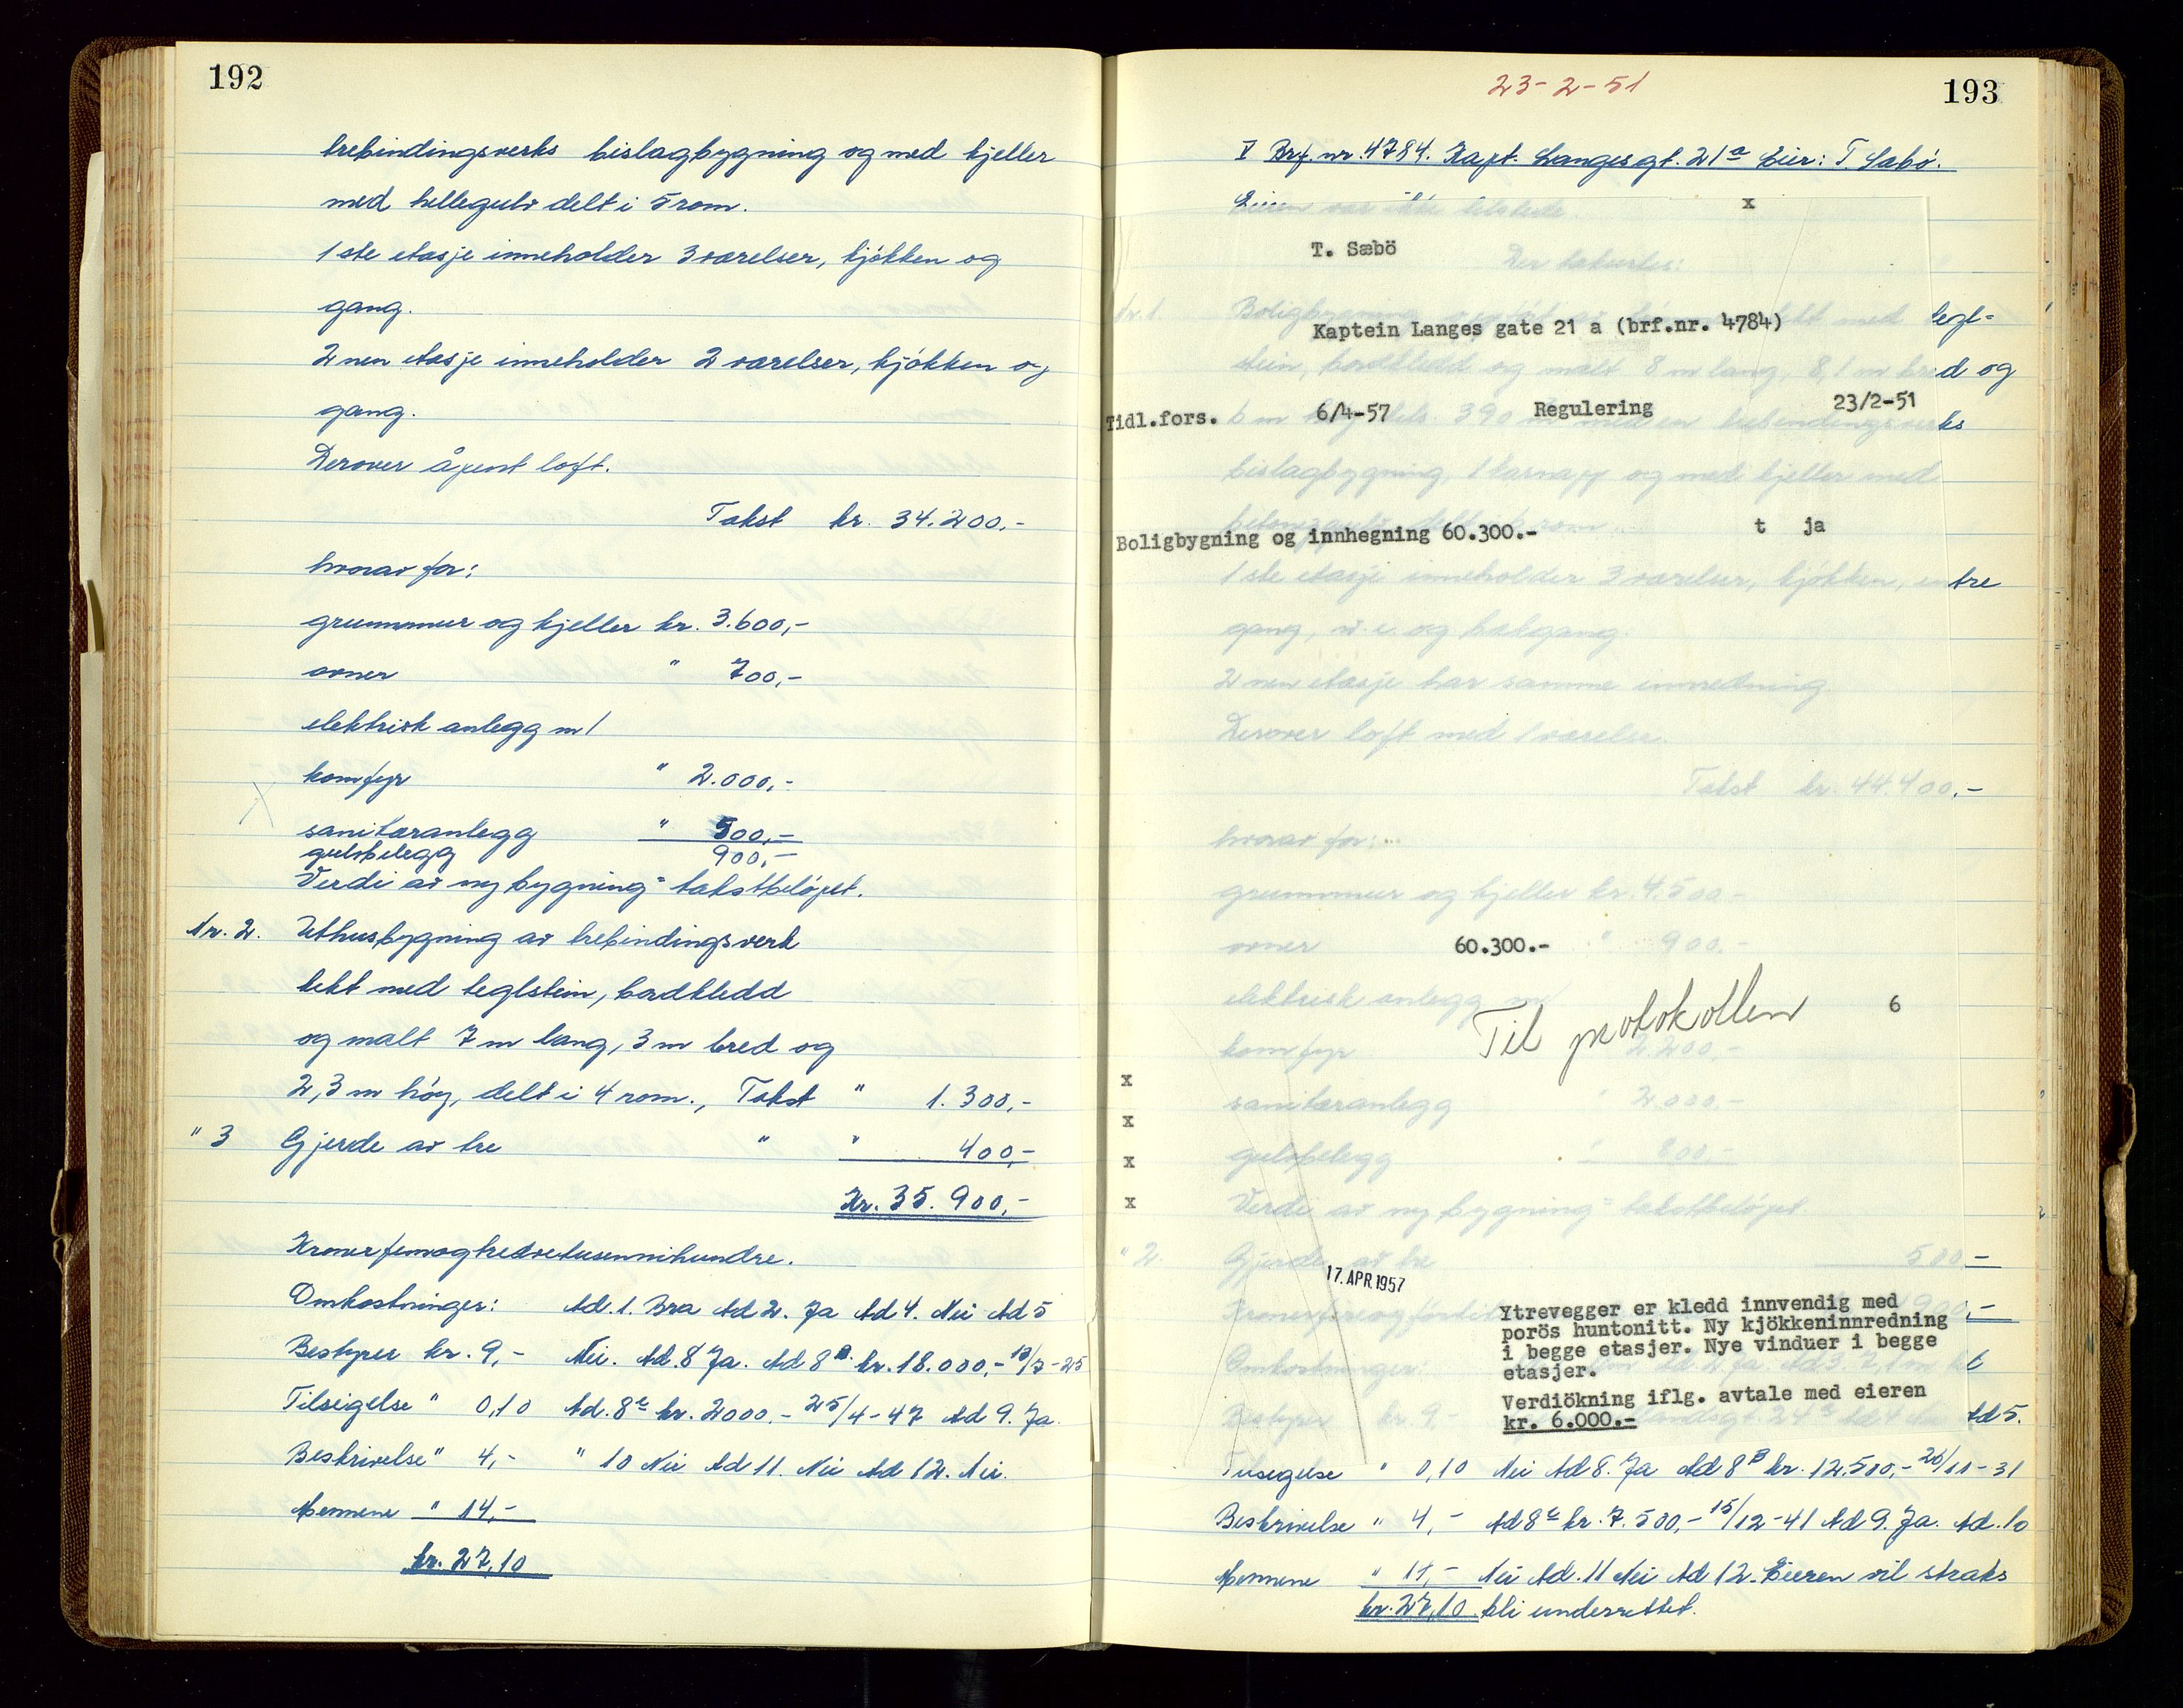 192
trebindingsverks bislagbygning og med kjeller
med hellegulv delt i 5 rom.
1 ste etasje inneholder 3 værelser, kjökken og
gang.
2 nen etasje inneholder 2 værelser, kjökken og
gang.
Derover åpent loft.
Takst kr. 34.200,-
hvorav for:
grunnmur og kjeller kr. 3.600,-
ovner " 700,-
elektrisk anlegg m/
komfyr " 2.000,-
sanitæranlegg " 500,-
gulvbelegg 900,-
Verdi av ny bygning = takstbelöpet.
Nr. 2. Uthusbygning av trebindingsverk
tekt med teglstein, bordkledd
og malt 7 m lang, 3 m bred og
2,3 m höy, delt i 4 rom., Takst " 1.300,-
" 3 Gjerde av tre " " 400,-
Kr. 35.900,-
Kroner femogtredvetusennihundre.
Omkostninger: Ad. 1. Bra Ad 2. Ja Ad 4. Nei Ad 5
Bestyrer kr. 9,- Nei. Ad. 8 Ja. Ad 8 B. kr. 18.000,- 13/3-25
Tilsigelse " 0,10 Ad. 8 c kr. 2000.- 25/4-47 Ad 9. Ja.
Beskrivelse " 4,- " 10 Nei Ad 11. Nei Ad 12. Nei.
Mennene " 14,-
kr. 27,10
23-2-51
193
V Brf. nr. 4784. Kapt. Langesgt. 21 a Eier: T. Sabö.
Eieren var ikke tilstede. x
T. Sæbö Der takseres:
Nr. 1. Boligbygning tekt med tegl-
Kaptein Langes gate 21 a (brf.nr. 4784)
stein, bordkledd og malt 8 m lang, 8,1 m bred og
Tidl.fors. 6/4-57 Regulering 23/2-51
6 m 390 en trebindingsverks
bislagbygning, 1 karnapp og med kjeller med
Boligbygning og innhegning 60.300.- t ja
1 ste etasje inneholder 3 værelser, kjökken, entre
gang, w.c. og bakgang.
2 nen etasje har samme innredning.
Derover loft med 1 værelse.
Takst kr. 44.400,-
hvorav for:
grunnmur og kjeller kr. 4.500-
ovner " 900.-
60.300.-
elektrisk anlegg m/
Til protokollen 6
komfyr 2.200,-
x
sanitæranlegg " 2.000,-
x
gulvbelegg " 800,-
x
x
Verdi av ny bygning = takstbelöpet.
" 2. Gjerde av tre 500 -
17. APR. 1957
Ytrevegger er kledd innvendig med
porös huntonitt. Ny kjökkeninnredning
i begge etasjer. Nye vinduer i begge
etasjer.
Omkostninger:
Verdiökning iflg. avtale med eieren
kr. 6.000.-
Bestyrer kr. 9,- Ad 5.
Tilsigelse " 0,10 Nei Ad 8. Ja Ad 8 B kr. 12.500,- 26/11-31
Beskrivelse " 4,- Ad 8 c kr. 7.500,- 15/12-41 Ad 9. Ja. Ad. 10
Mennene " 14,- Nei Ad. 11 Nei Ad 12. Eieren vil straks
kr. 27,10. bli underrettet.